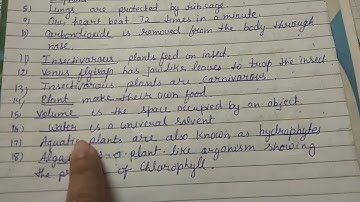 5) Lungs are protected by rib cage.
a) Our heart beat 72 times in a minute.
b) Carbondioxide is removed from the body through
nose.
11) Insectivorous plants feed on insect.
12) Venus flytrap has jaw like leaves to trap the insect
13) Insectivorous plants are Carnivorous.
14) Plant make their own food
15) Volume is the space occupied by an object
16) Water is a univeral solvent
17) Aquatic plants are also known as hydrophytes
18) Algae plant-like organism showing
the of Chlorophyll.